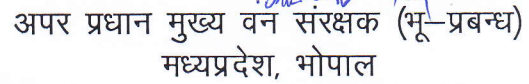 अपर प्रधान मुख्य वन संरक्षक (भू–प्रबन्ध)
मध्यप्रदेश, भोपाल